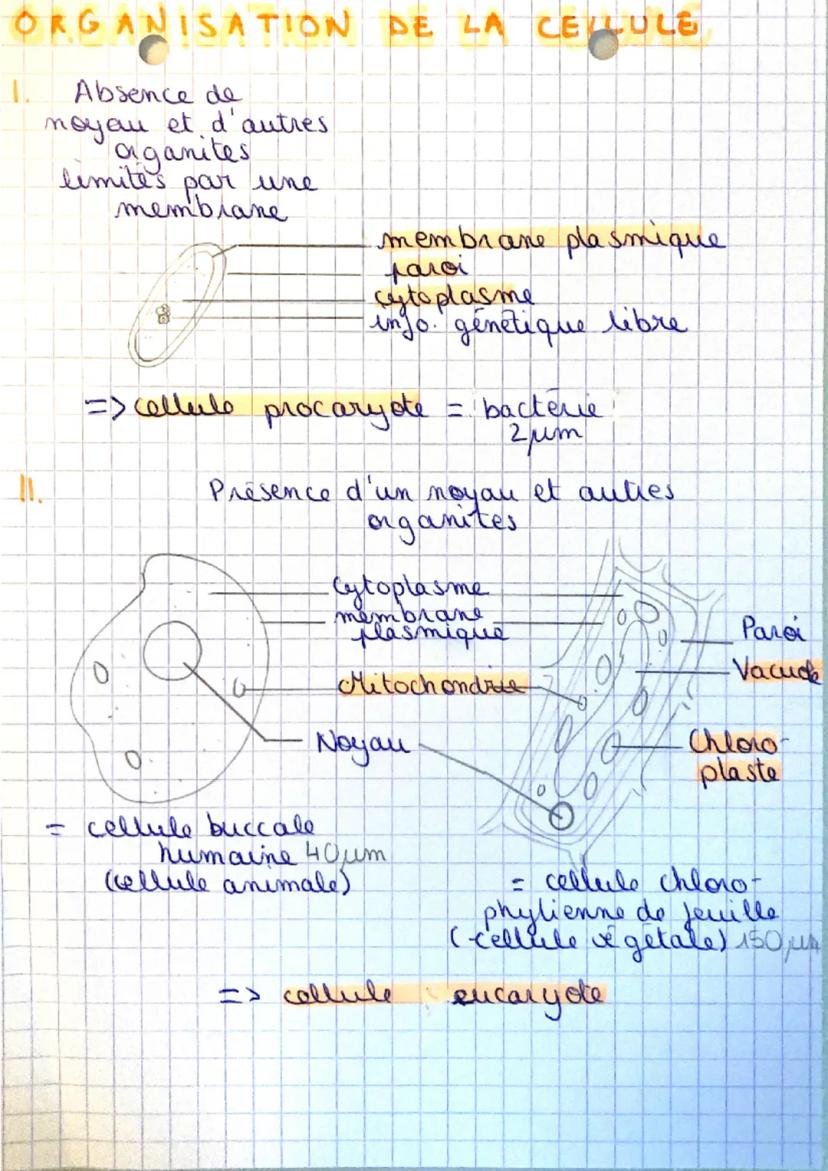 ORGANISATION DE LA CELLULE
I. Absence de
noyau et d'autres
organites
limités par une
membrane
membrane plasmique
paroi
cytoplasme
info. génétique libre
=> cellule procaryote = bactérie
2 µm
II. Présence d'un noyau et autres
organites
Cytoplasme
membrane
plasmique
Paroi
Vacuole
Mitochondrie
Noyau
Chloro-
plaste
= cellule buccale
humaine 40 µm
(cellule animale)
= cellule chloro-
phylienne de feuille
(cellule végétale) 150 µm
=> cellule eucaryote